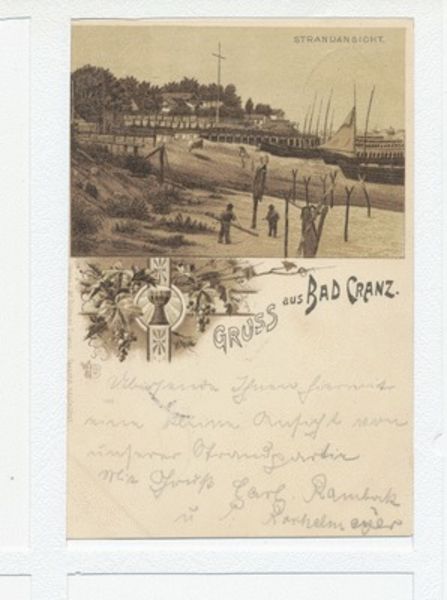 STRANDANSICHT.
GRUSS aus BAD CRANZ.
Übersende Ihnen hiermit
eine kleine Ansicht von
unserer Strandpartie
Mit Gruß Carl
u